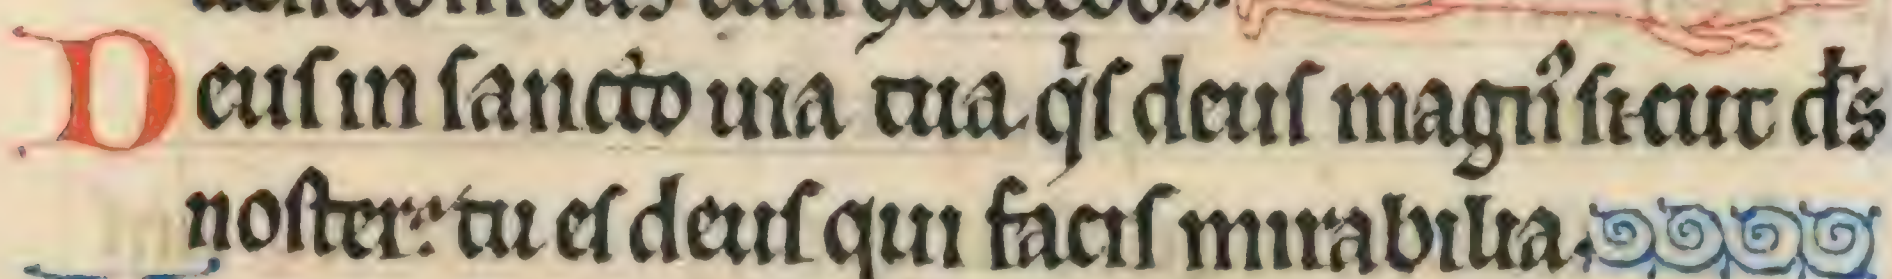 Deuſ in ſancto uia tua qͥſ deuſ magnꝰ ſicut d̅s
noſter: tu eſ deuſ qui faciſ mirabilia.